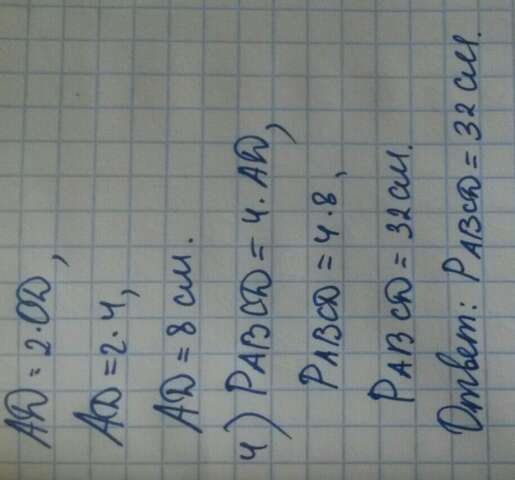 AD = 2·OD,
AD = 2·4,
AD = 8 см.
4) PABCD = 4·AD,
PABCD = 4·8,
PABCD = 32 см.
Ответ: PABCD = 32 см.